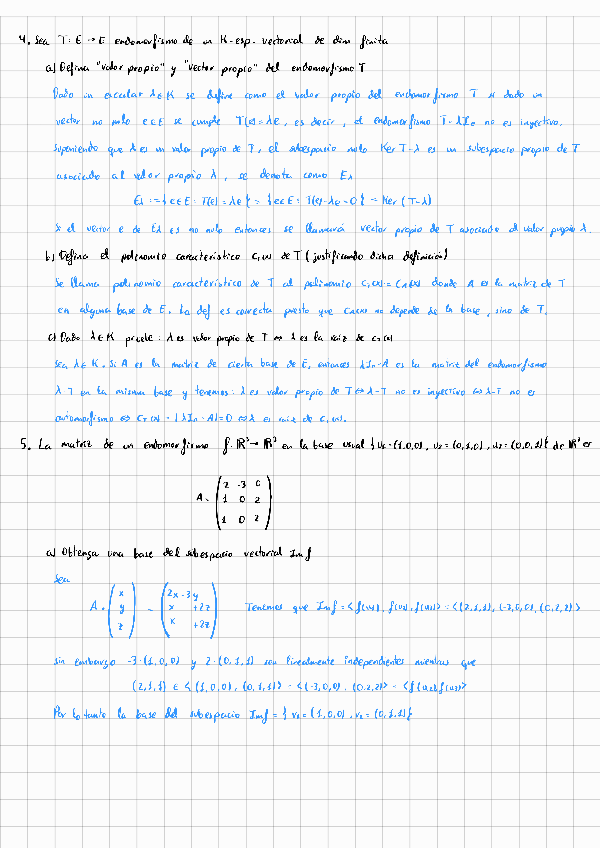 4. Sea T: E → E endomorfismo de un K-esp. vectorial de dim finita
a) Defina "valor propio" y "vector propio" del endomorfismo T
Dado un escalar λ∈K se define como el valor propio del endomorfismo T si dado un
vector no nulo e∈E se cumple T(e)=λe, es decir, el endomorfismo T-λIₙ no es inyectivo.
Suponiendo que λ es un valor propio de T, el subespacio nulo Ker T-λ es un subespacio propio de T
asociado al valor propio λ, se denota como Eλ
Eλ := {e∈E : T(e) = λe} = {e∈E : T(e)-λe=0} = Ker (T-λ)
Si el vector e de Eλ es no nulo entonces se llamará vector propio de T asociado al valor propio λ.
b) Defina el polinomio característico C_T(x) de T (justificando dicha definición)
Se llama polinomio característico de T al polinomio C_T(x) = C_A(x) donde A es la matriz de T
en alguna base de E. La def es correcta puesto que C_A(x) no depende de la base, sino de T.
c) Dado λ∈K pruebe: λ es valor propio de T ⇔ λ es la raiz de C_T(x)
Sea λ∈K. Si A es la matriz de cierta base de E, entonces λIₙ-A es la matriz del endomorfismo
λ-T en la misma base y tenemos: λ es valor propio de T ⇔ λ-T no es inyectivo ⇔ λ-T no es
automorfismo ⇔ C_T(λ) = |λIₙ-A|=0 ⇔ λ es raiz de C_T(x).
5. La matriz de un endomorfismo f: ℝ³→ℝ³ en la base usual {u₁=(1,0,0), u₂=(0,1,0), u₃=(0,0,1)} de ℝ³ es
A = (2 -3 0
1 0 2
1 0 2)
a) Obtenga una base del subespacio vectorial Im f
Sea
A · (x y z) = (2x-3y x +2z x +2z) Tenemos que Im f = <f(u₁), f(u₂), f(u₃)> = <(2,1,1), (-3,0,0), (0,2,2)>
sin embargo -3·(1,0,0) y 2·(0,1,1) son linealmente independientes mientras que
(2,1,1) ∈ <(1,0,0), (0,1,1)> = <(-3,0,0), (0,2,2)> = <f(u₂), f(u₃)>
Por lo tanto la base del subespacio Im f = {v₁ = (1,0,0), v₂ = (0,1,1)}